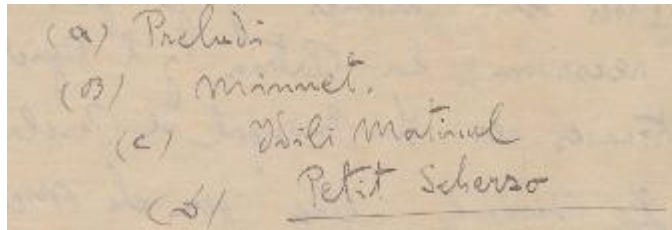 (a) Preludi
(B) Minuet.
(c) Idili Matinal
(D) Petit Scherso